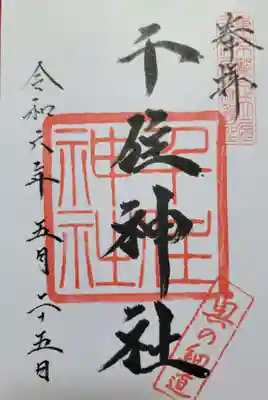 奉拝
千住神社
千住神社
奥の細道
令和六年五月二十五日